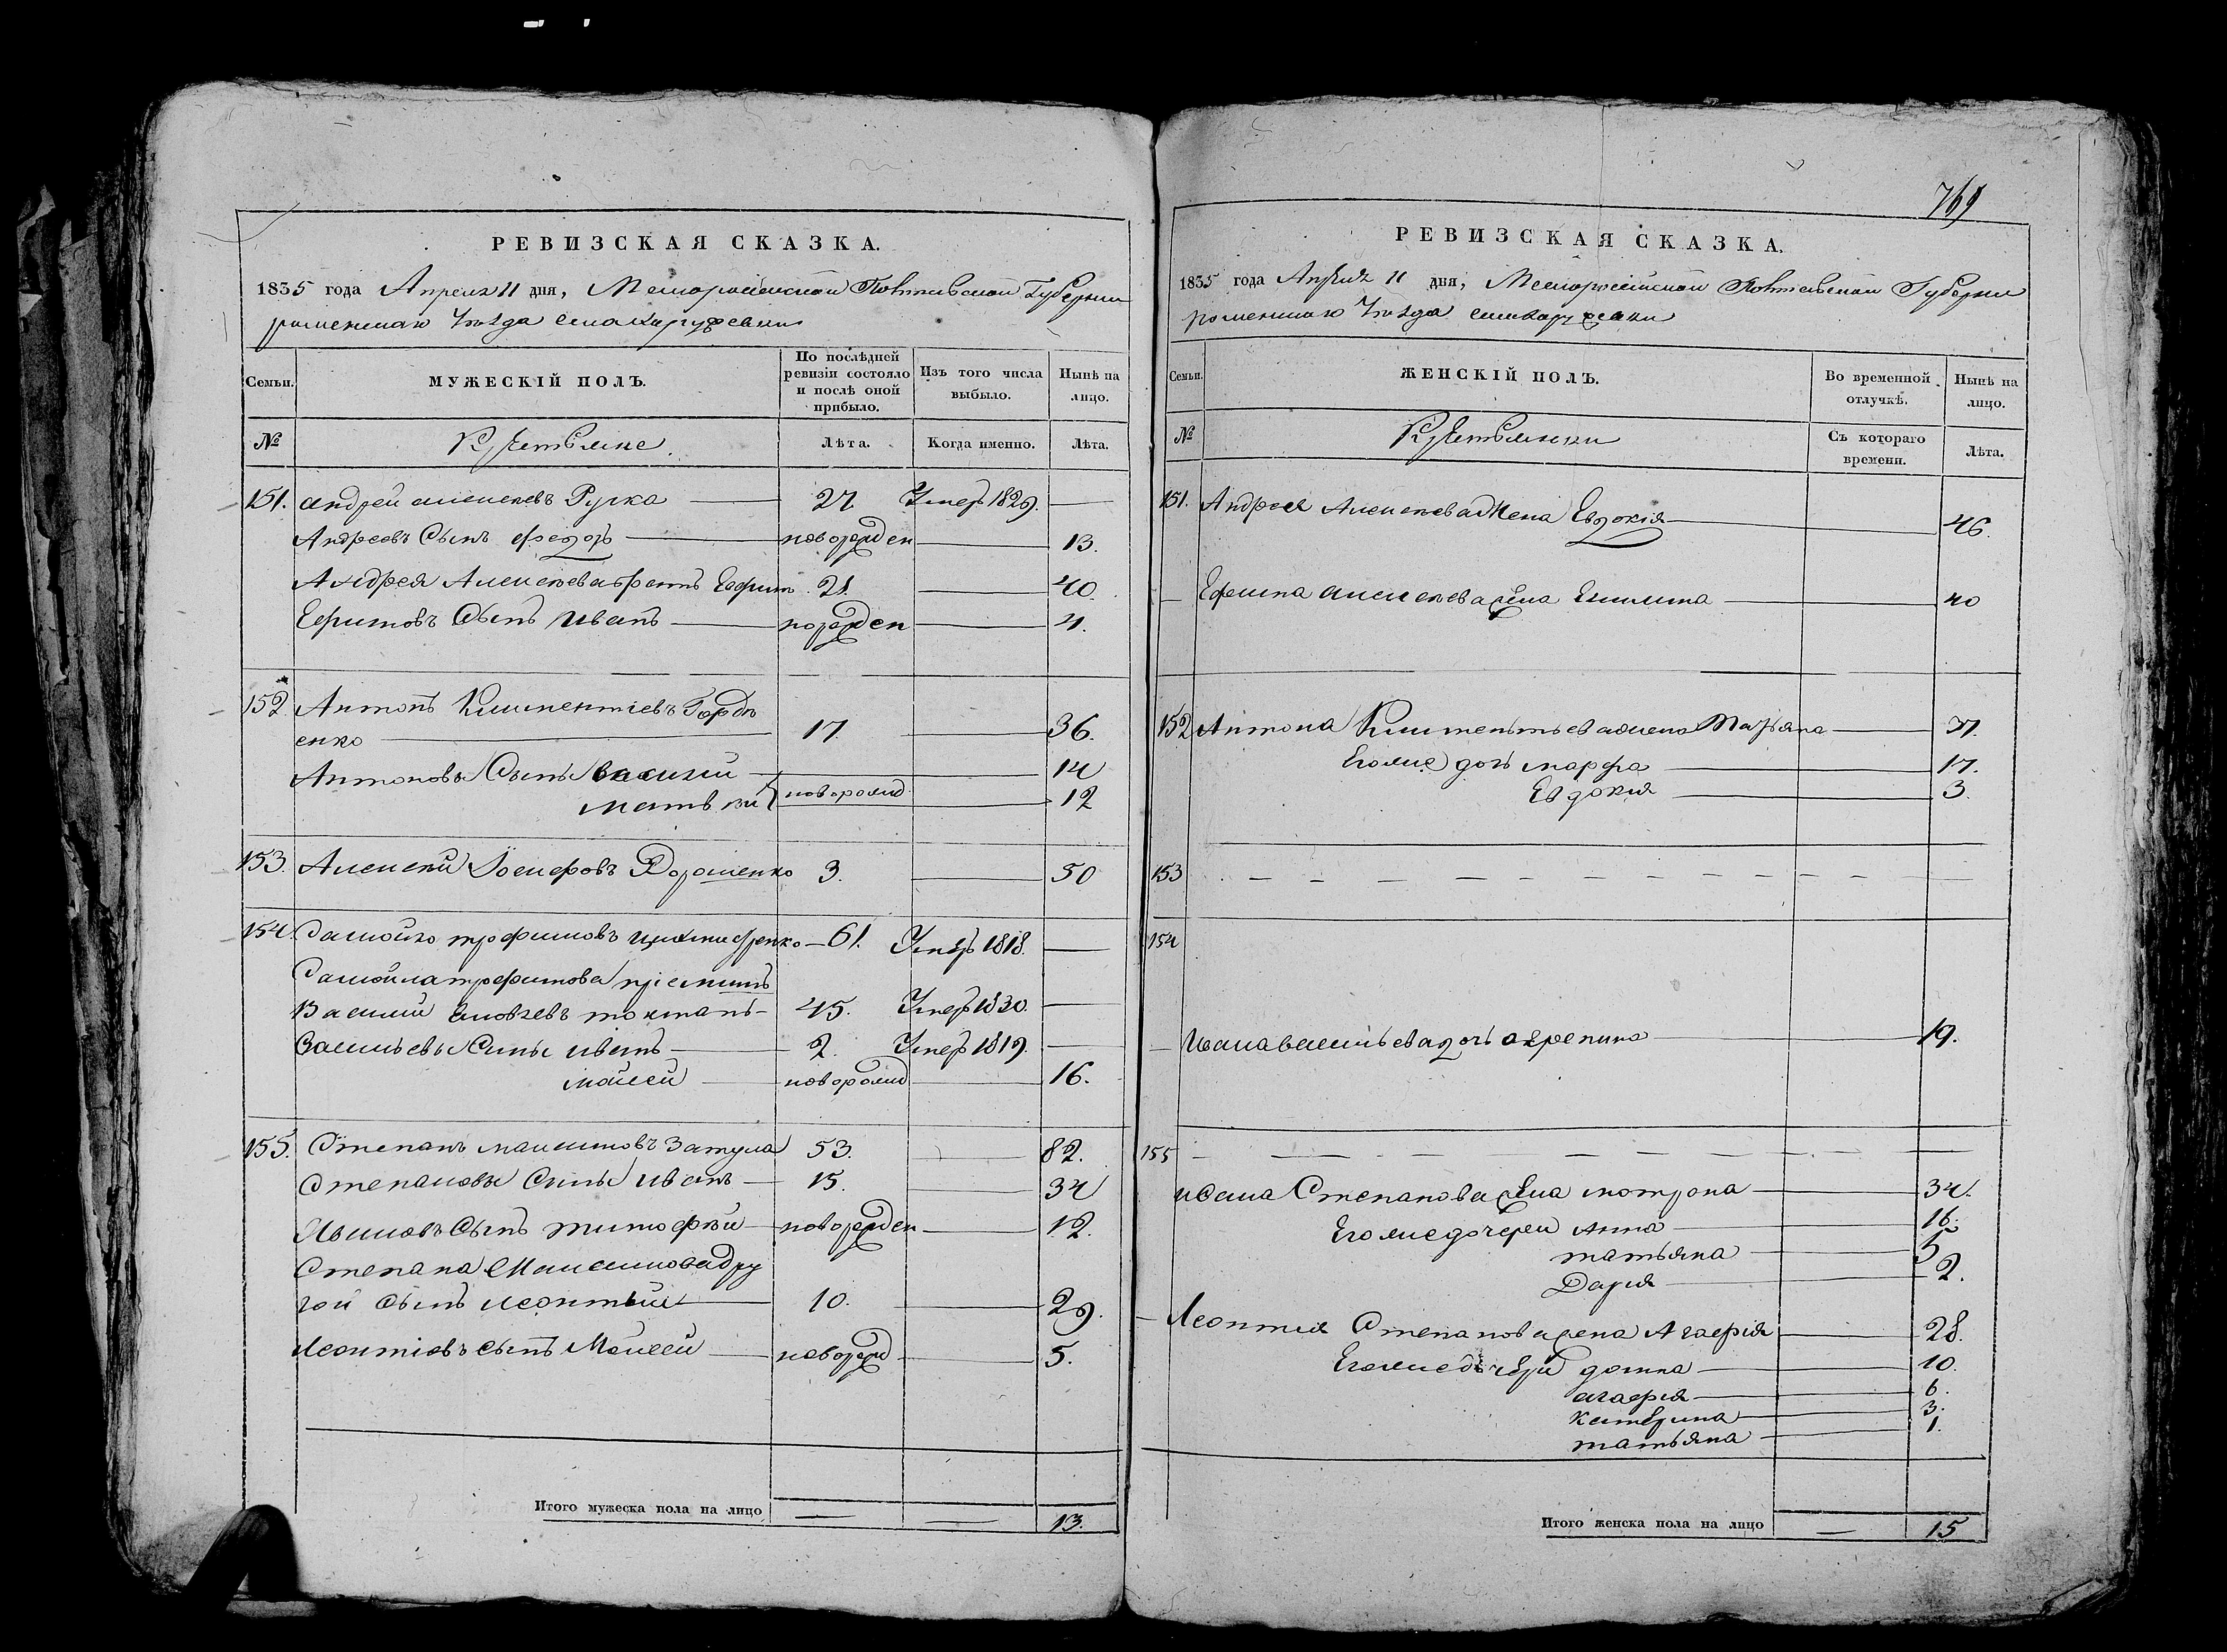 769
РЕВИЗСКАЯ СКАЗКА.
1835 года Апреля 11 дня, Малороссійской Полтавской Губерніи
роменского Уѣзда села
Семьи.
МУЖЕСКІЙ ПОЛЪ.
По послѣдней ревизіи состояло и послѣ оной прибыло.
Изъ того числа выбыло.
Нынѣ на лицо.
№
Крестьяне.
Лѣта.
Когда именно.
Лѣта.
151. Андрей Алексеевъ Рудка 27. Умеръ 1829.
Андреевъ Сынъ Федоръ новорожден 13.
Андрея Алексеева братъ Ефим 21. 40.
Ефимовъ Сынъ Иванъ норожден 4.
152. Антонъ Климентіевъ Горде
енко 17. 36.
Антоновы Сыны Василий 14
Матвѣй новорожд 12
153. Алексей Іосифовъ Дорошенко 3. 50
154. Самойло трофимовъ 61. Умеръ 1818.
Самойла трофимова пріемишъ
Василий 45. Умеръ 1830.
Васильевы Сыны иванъ 2. Умеръ 1819.
Моисей новорожд 16.
155. Степанъ Максимовъ Затула 53. 82.
Степановы Сыны иванъ 15. 34
Ивановъ Сынъ тимофѣй новорожден 12.
Степана Максимова дру
гой Сынъ Леонтій 10. 29.
Леонтіевъ Сынъ Моисей новорожд 5.
Итого мужеска пола на лицо — — 13.
РЕВИЗСКАЯ СКАЗКА.
1835 года Апреля 11 дня, Малороссійской Полтавской Губерніи
роменского Уѣзда села
Семьи.
ЖЕНСКІЙ ПОЛЪ.
Во временной отлучкѣ.
Нынѣ на лицо.
№
Крестьянки
Съ котораго времени.
Лѣта.
151. Андрея Алексеева жена Евдокія 46.
Ефима Алексеева жена 40
152 Антона Климентьева жена Татьяна 37.
Его же дочь марфа 17.
Евдокия 3.
153
154
Ивана васильева дочь 19.
155
ивана Степанова жена мотрона 34.
Его же дочери Анна 16.
татьяна 5
Дария 2.
Леонтия Степанова жена Агафия 28.
Его же дочери домна 10.
агафия 6.
катерина 3.
татьяна 1.
Итого женска пола на лицо — 15